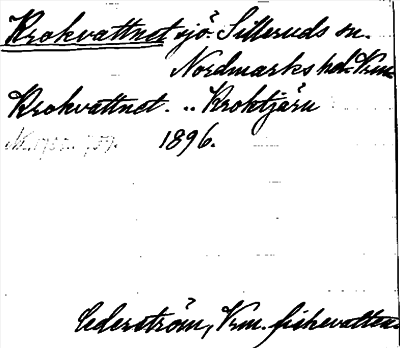 Krokvattnet sjö. Silleruds sn.
Nordmarks hd. Vrm.
Krokvattnet. .. Kroktjärn
1896.
Cederström, Vrm. fiskevatten